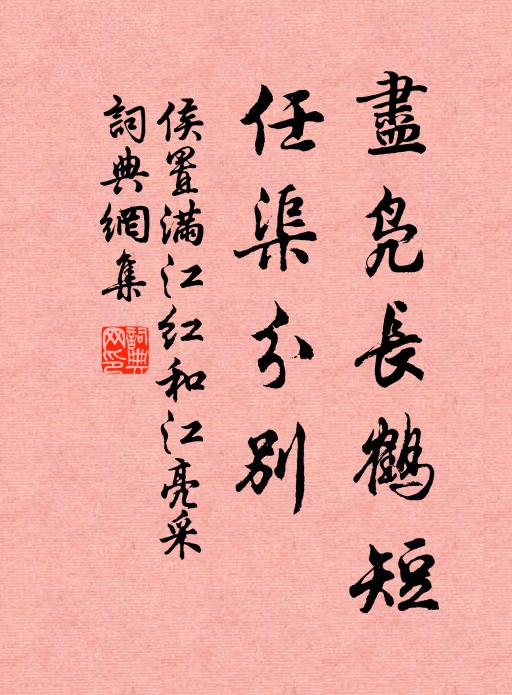 盡凫長鶴短
任渠分别
侯置滿江红和江亮采
詞典網集
詞典網印